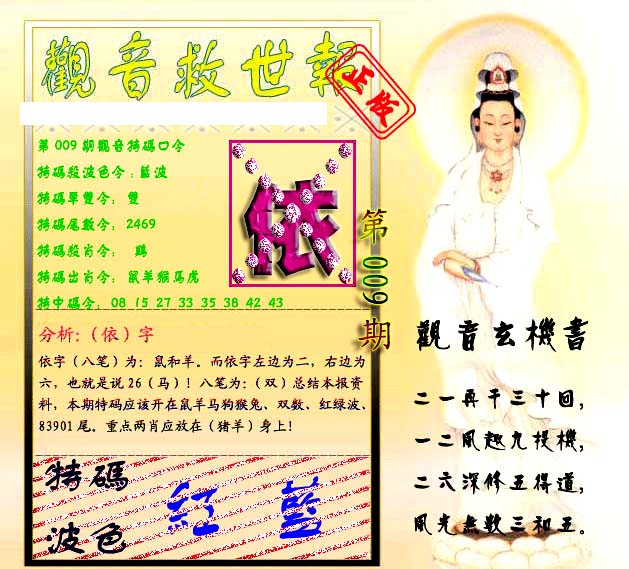 觀音救世報
正版
第009期觀音特碼口令
特碼殺波色令：藍波
特碼單雙令： 雙
特碼尾數令： 2469
特碼殺肖令： 鷄
特碼出肖令： 鼠羊猴馬虎
特中碼令： 08 15 27 33 35 38 42 43
依
第009期
分析：（依）字
依字（八笔）为：鼠和羊。而依字左边为二，右边为
六，也就是说26（马）！八笔为：（双）总结本报资
料，本期特码应该开在鼠羊马狗猴兔、双数、红绿波、
83901尾。重点两肖应放在（猪羊）身上！
特碼
波色
紅 藍
觀音玄機書
二一再干三十回，
一二風趣九投機，
二六深修五得道，
風光無數三和五。